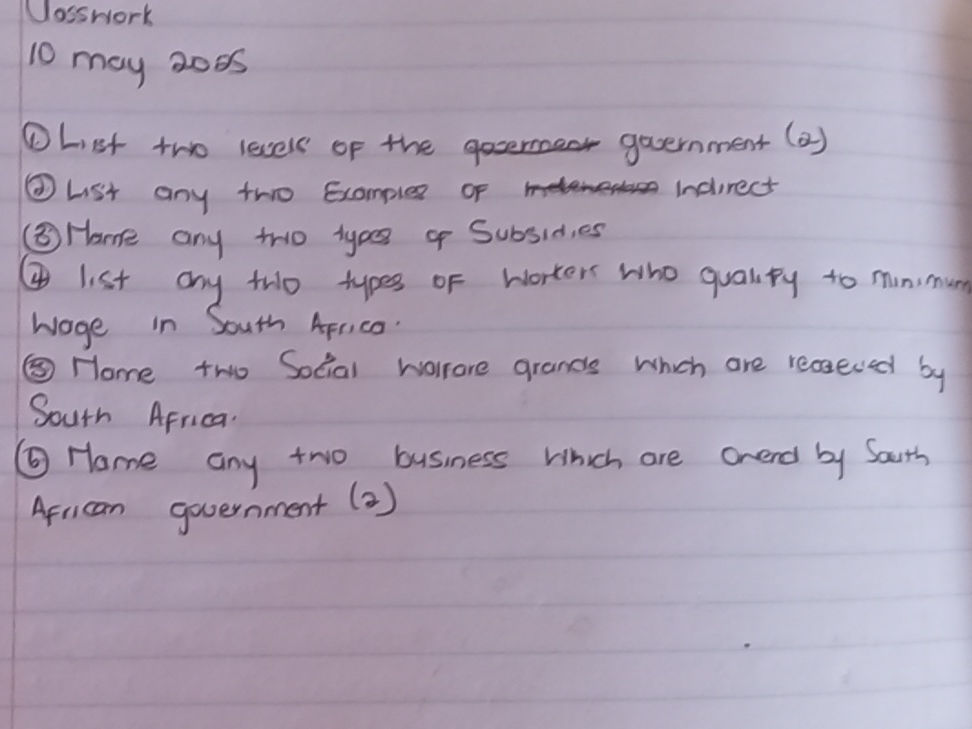 Classwork
10 may 2025
① List two levels of the government (2)
② List any two Examples of Indirect
③ Name any two types of Subsidies
④ list any two types of workers who qualify to minimum
Wage in South Africa.
⑤ Name two Social walfare grands which are receeved by
South Africa.
⑥ Name any two business which are onend by South
African government (2)